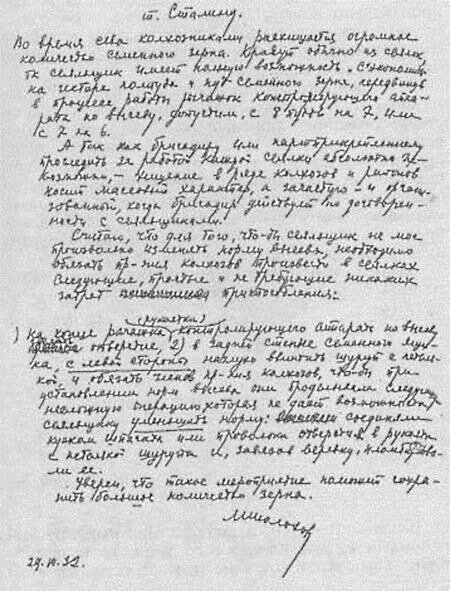 т. Сталину.
Во время сева колхозниками расхищается огромное
количество семенного зерна. Крадут обычно из сеялок,
т.к. сеяльщик имеет полную возможность "сэкономить"
на гектаре полтора пуд семенного зерна, передвинув
в процессе работы рычажок контролирующего аппа-
рата по высеву, допустим, с 8 пудов на 7, или
с 7 на 6.
А так как бригадиру или партприкрепленному
проследить за работой каждой сеялки абсолютно не-
возможно, – хищение в ряде колхозов и районов
носит массовый характер, а зачастую – и органи-
зованный, когда бригадир действует по договорен-
ности с сеяльщиками.
Считаю, что для того, что-бы сеяльщик не мог
произвольно изменять норму высева, необходимо
обязать пр-ния колхозов произвести в сеялках
следующие, простые и не требующие никаких
затрат приспособления:
(рукоятки)
1) на конце рычажка контролирующего аппарата по высеву
отверстие, 2) в задней стенке семенного ящи-
ка, с левой стороны наглухо ввинтить шуруп с петель-
кой и обязать членов пр-ния колхозов, что-бы при
установлении норм высева они проделывали следующую
несложную операцию, которая не даёт возможности
сеяльщику уменьшать норму: соединяли
куском шпагата или проволоки отверстие в рукоятке
с петелкой шурупа и, завязав веревку, пломбирова-
ли ее.
Уверен, что такое мероприятие поможет сохра-
нить большое количество зерна.
М. Шолохов
29.10.32.